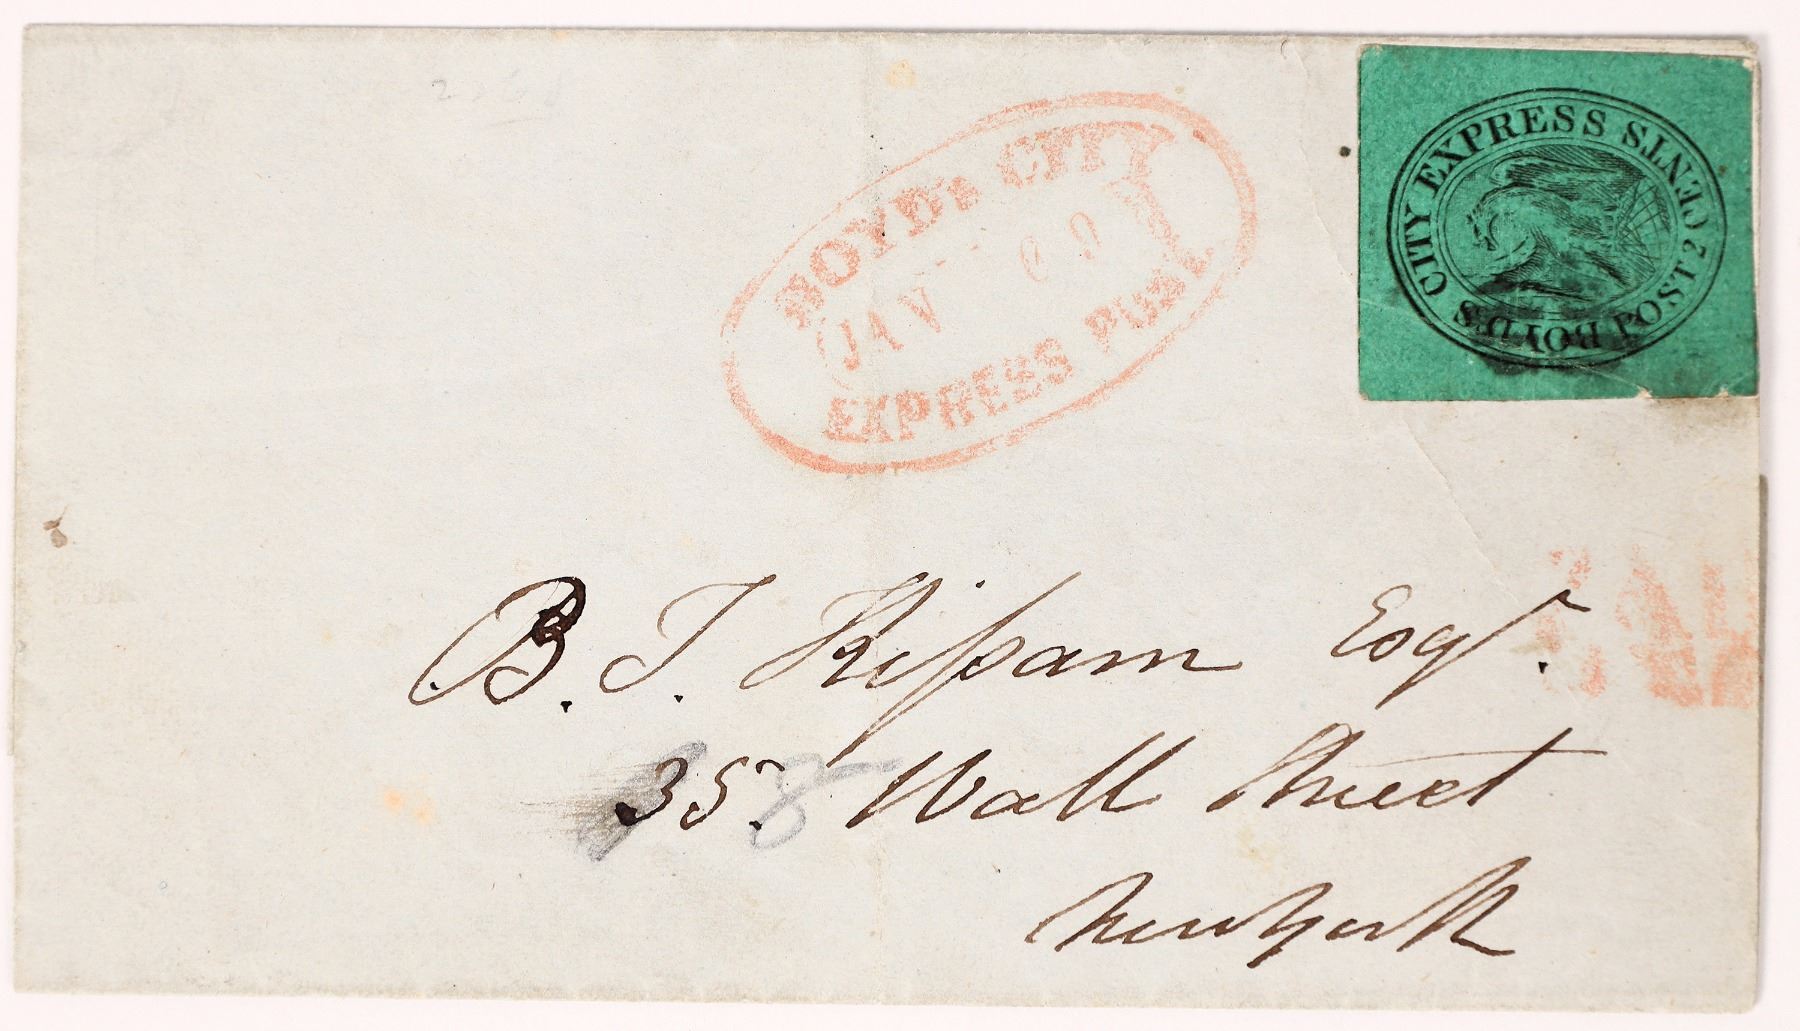 BOYD's CITY
JAN
EXPRESS POST
BOYD'S CITY EXPRESS POST. 2 CENTS
B. T. Kissam Esqr.
35. Wall Street
New York